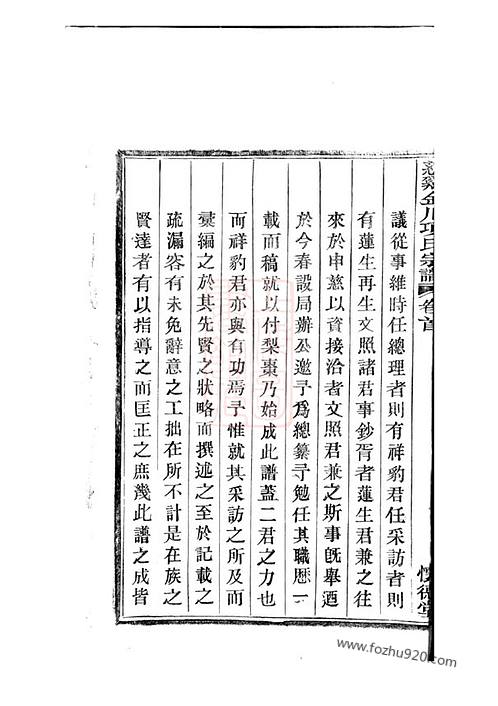 慈谿金川項氏宗譜 卷首
議從事維時任總理者則有祥豹君任采訪者則
有蓮生再生文照諸君事鈔胥者蓮生君兼之往
來於申慈以資接洽者文照君兼之斯事旣舉迺
於今春設局辦公邀予爲總纂予勉任其職歷一
載而稿就以付梨棗乃始成此譜蓋二君之力也
而祥豹君亦與有功焉予惟就其采訪之所及而
彙編之於其先賢之狀略而撰述之至於記載之
疏漏容有未免辭意之工拙在所不計是在族之
賢達者有以指導之而匡正之庶幾此譜之成皆
www.fozhu920.com